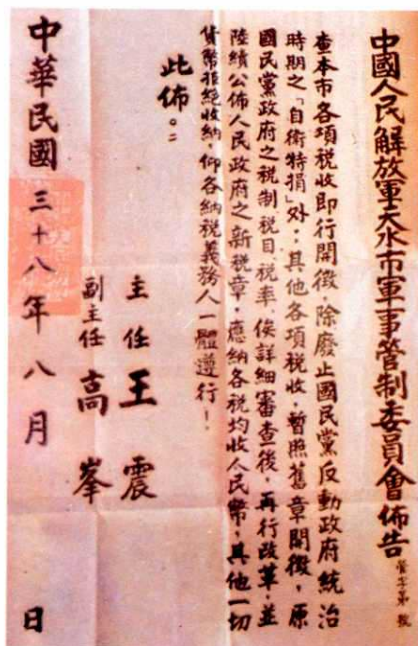 中國人民解放軍天水市軍事管制委員會佈告
管字第 號
查本市各項稅收即行開徵，除廢止國民黨反動政府統治
時期之「自衛特捐」外；其他各項稅收，暫照舊章開徵，原
國民黨政府之稅制稅目、稅率、俟詳細審查後，再行改革，並
陸續公佈人民政府之新稅章，應納各稅均收人民幣，其他一切
貨幣拒絕收納，仰各納稅義務人一體遵行！
此佈。
主任 王震
副主任 高峯
中華民國三十八年八月 日